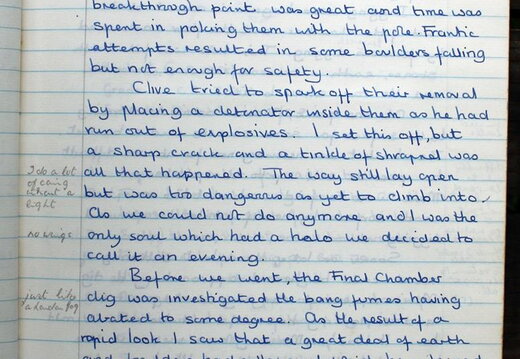 breakthrough point was great and time was
spent in poking them with the pole. Frantic
attempts resulted in some boulders falling
but not enough for safety.
Clive tried to spark off their removal
by placing a detonator inside them as he had
run out of explosives. I set this off, but
a sharp crack and a tinkle of shrapnel was
I do a lot
all that happened. The way still lay open
of caving
without a
but was too dangerous as yet to climb into.
light
As we could not do anymore and I was the
no wings
only soul which had a halo we decided to
call it an evening.
Before we went, the Final Chamber
just like
dig was investigated the bang fumes having
a London fog
abated to some degree. As the result of a
rapid look I saw that a great deal of earth